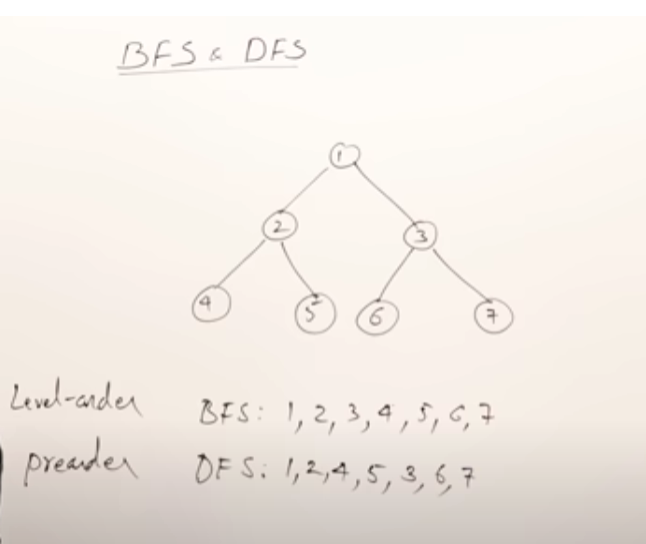 BFS & DFS
1
2 3
4 5 6 7
Level-order BFS: 1, 2, 3, 4, 5, 6, 7
preorder DFS: 1, 2, 4, 5, 3, 6, 7